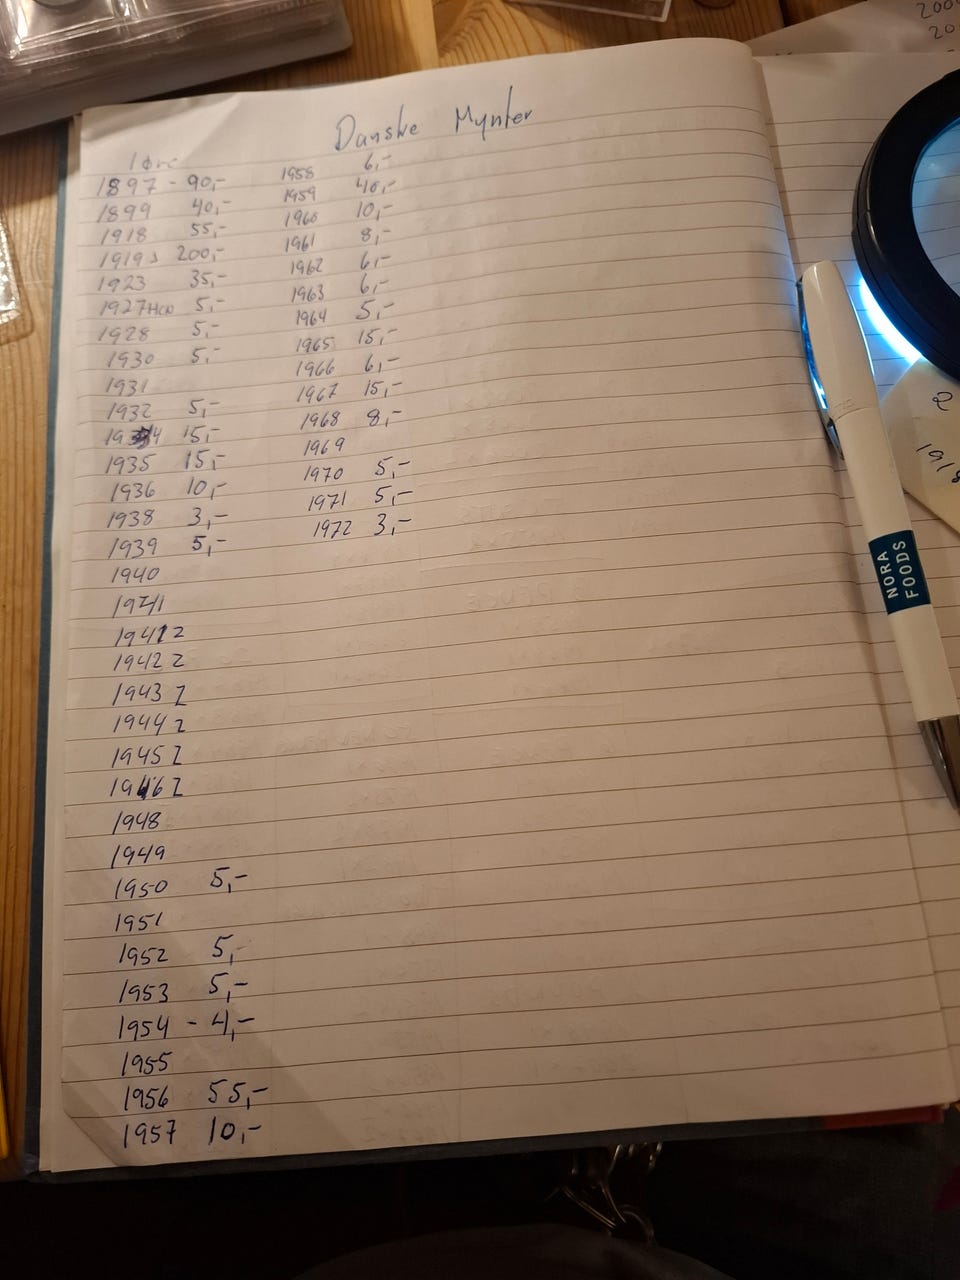 Danske Mynter
1 øre
1897 - 90,-
1899 40,-
1918 55,-
1919 J 200,-
1923 35,-
1927 HCN 5,-
1928 5,-
1930 5,-
1931
1932 5,-
1934 15,-
1935 15,-
1936 10,-
1938 3,-
1939 5,-
1940
1941
1941 Z
1942 Z
1943 Z
1944 Z
1945 Z
1946 Z
1948
1949
1950 5,-
1951
1952 5,-
1953 5,-
1954 - 4,-
1955
1956 55,-
1957 10,-
1958 6,-
1959 40,-
1960 10,-
1961 8,-
1962 6,-
1963 6,-
1964 5,-
1965 15,-
1966 6,-
1967 15,-
1968 8,-
1969
1970 5,-
1971 5,-
1972 3,-
NORA
FOODS
2